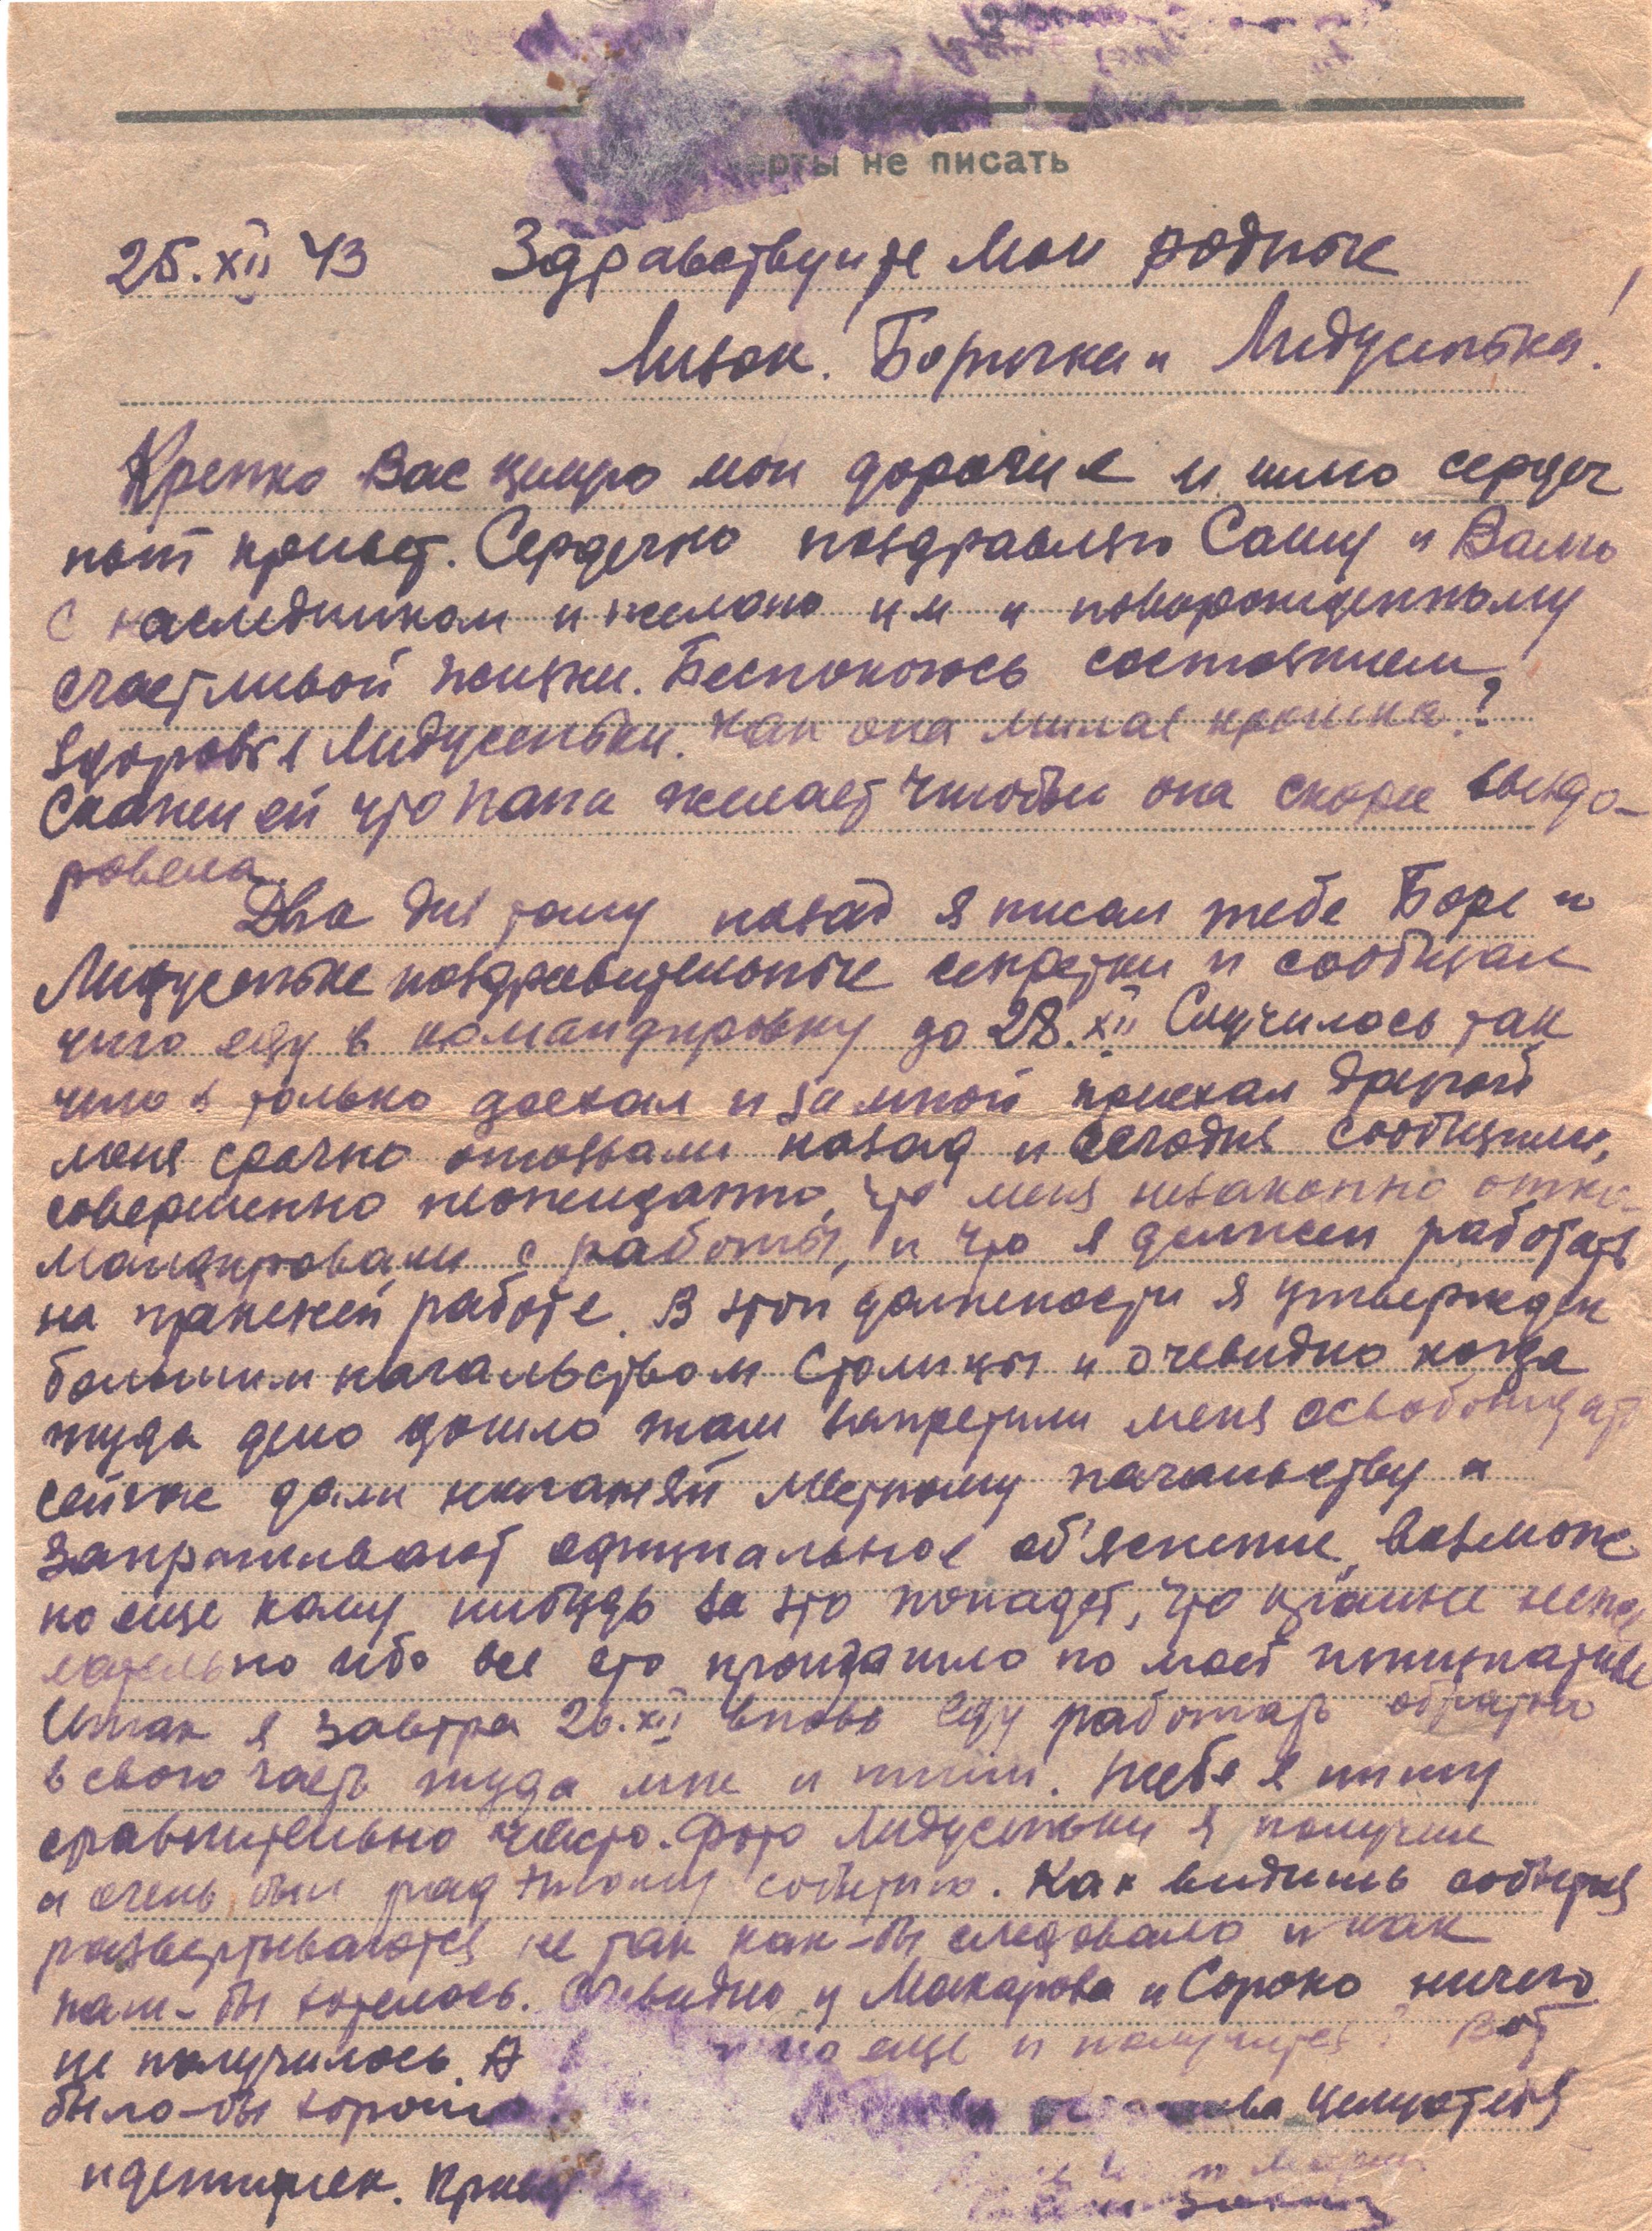 черты не писать
25.XII 43 Здравствуйте мои родные
Лизок! Борочка и Лидусенька!
Крепко Вас целую мои дорогие и шлю сердеч
ный привет. Сердечно поздравляю Сашу и Валю
с наследником и желаю им и новорожденному
счастливой жизни. Беспокоюсь состоянием
здоровья Лидусеньки. Как она милая крошка?
Скажи ей что папа желает чтобы она скорее выздо-
ровела.
Два дня тому назад я писал тебе Боре и
Лидусеньке поздравительные секретки и сообщал
что еду в командировку до 28.XII Случилось так
что я только доехал и за мной приехал другой
меня срочно отозвали назад и сегодня сообщили,
совершенно неожиданно, что меня незаконно отко-
мандировали с работы, и что я должен работать
на прежней работе. В этой должности я утвержден
большим начальством столицы и очевидно когда
туда дело дошло там запретили меня освобождать
сейчас дали нагоняй местному начальству и
запрашивают официальное об'яснение, возмож
но еще кому нибудь за это попадет, что крайне неже
лательно ибо все это произошло по моей инициативе
Итак я завтра 26.XII вновь еду работать обратно
в свою часть туда мне и пиши. Тебе я пишу
сравнительно часто. Фото Лидусеньки я получил
и очень был рад этому событию. Как видишь события
развертываются не так как-бы следовало и как
нам-бы хотелось. Очевидно у Макарова и Сороко ничего
не получилось. А еще и получится? Вот
было-бы хорошо целуйте
и детишек. Привет